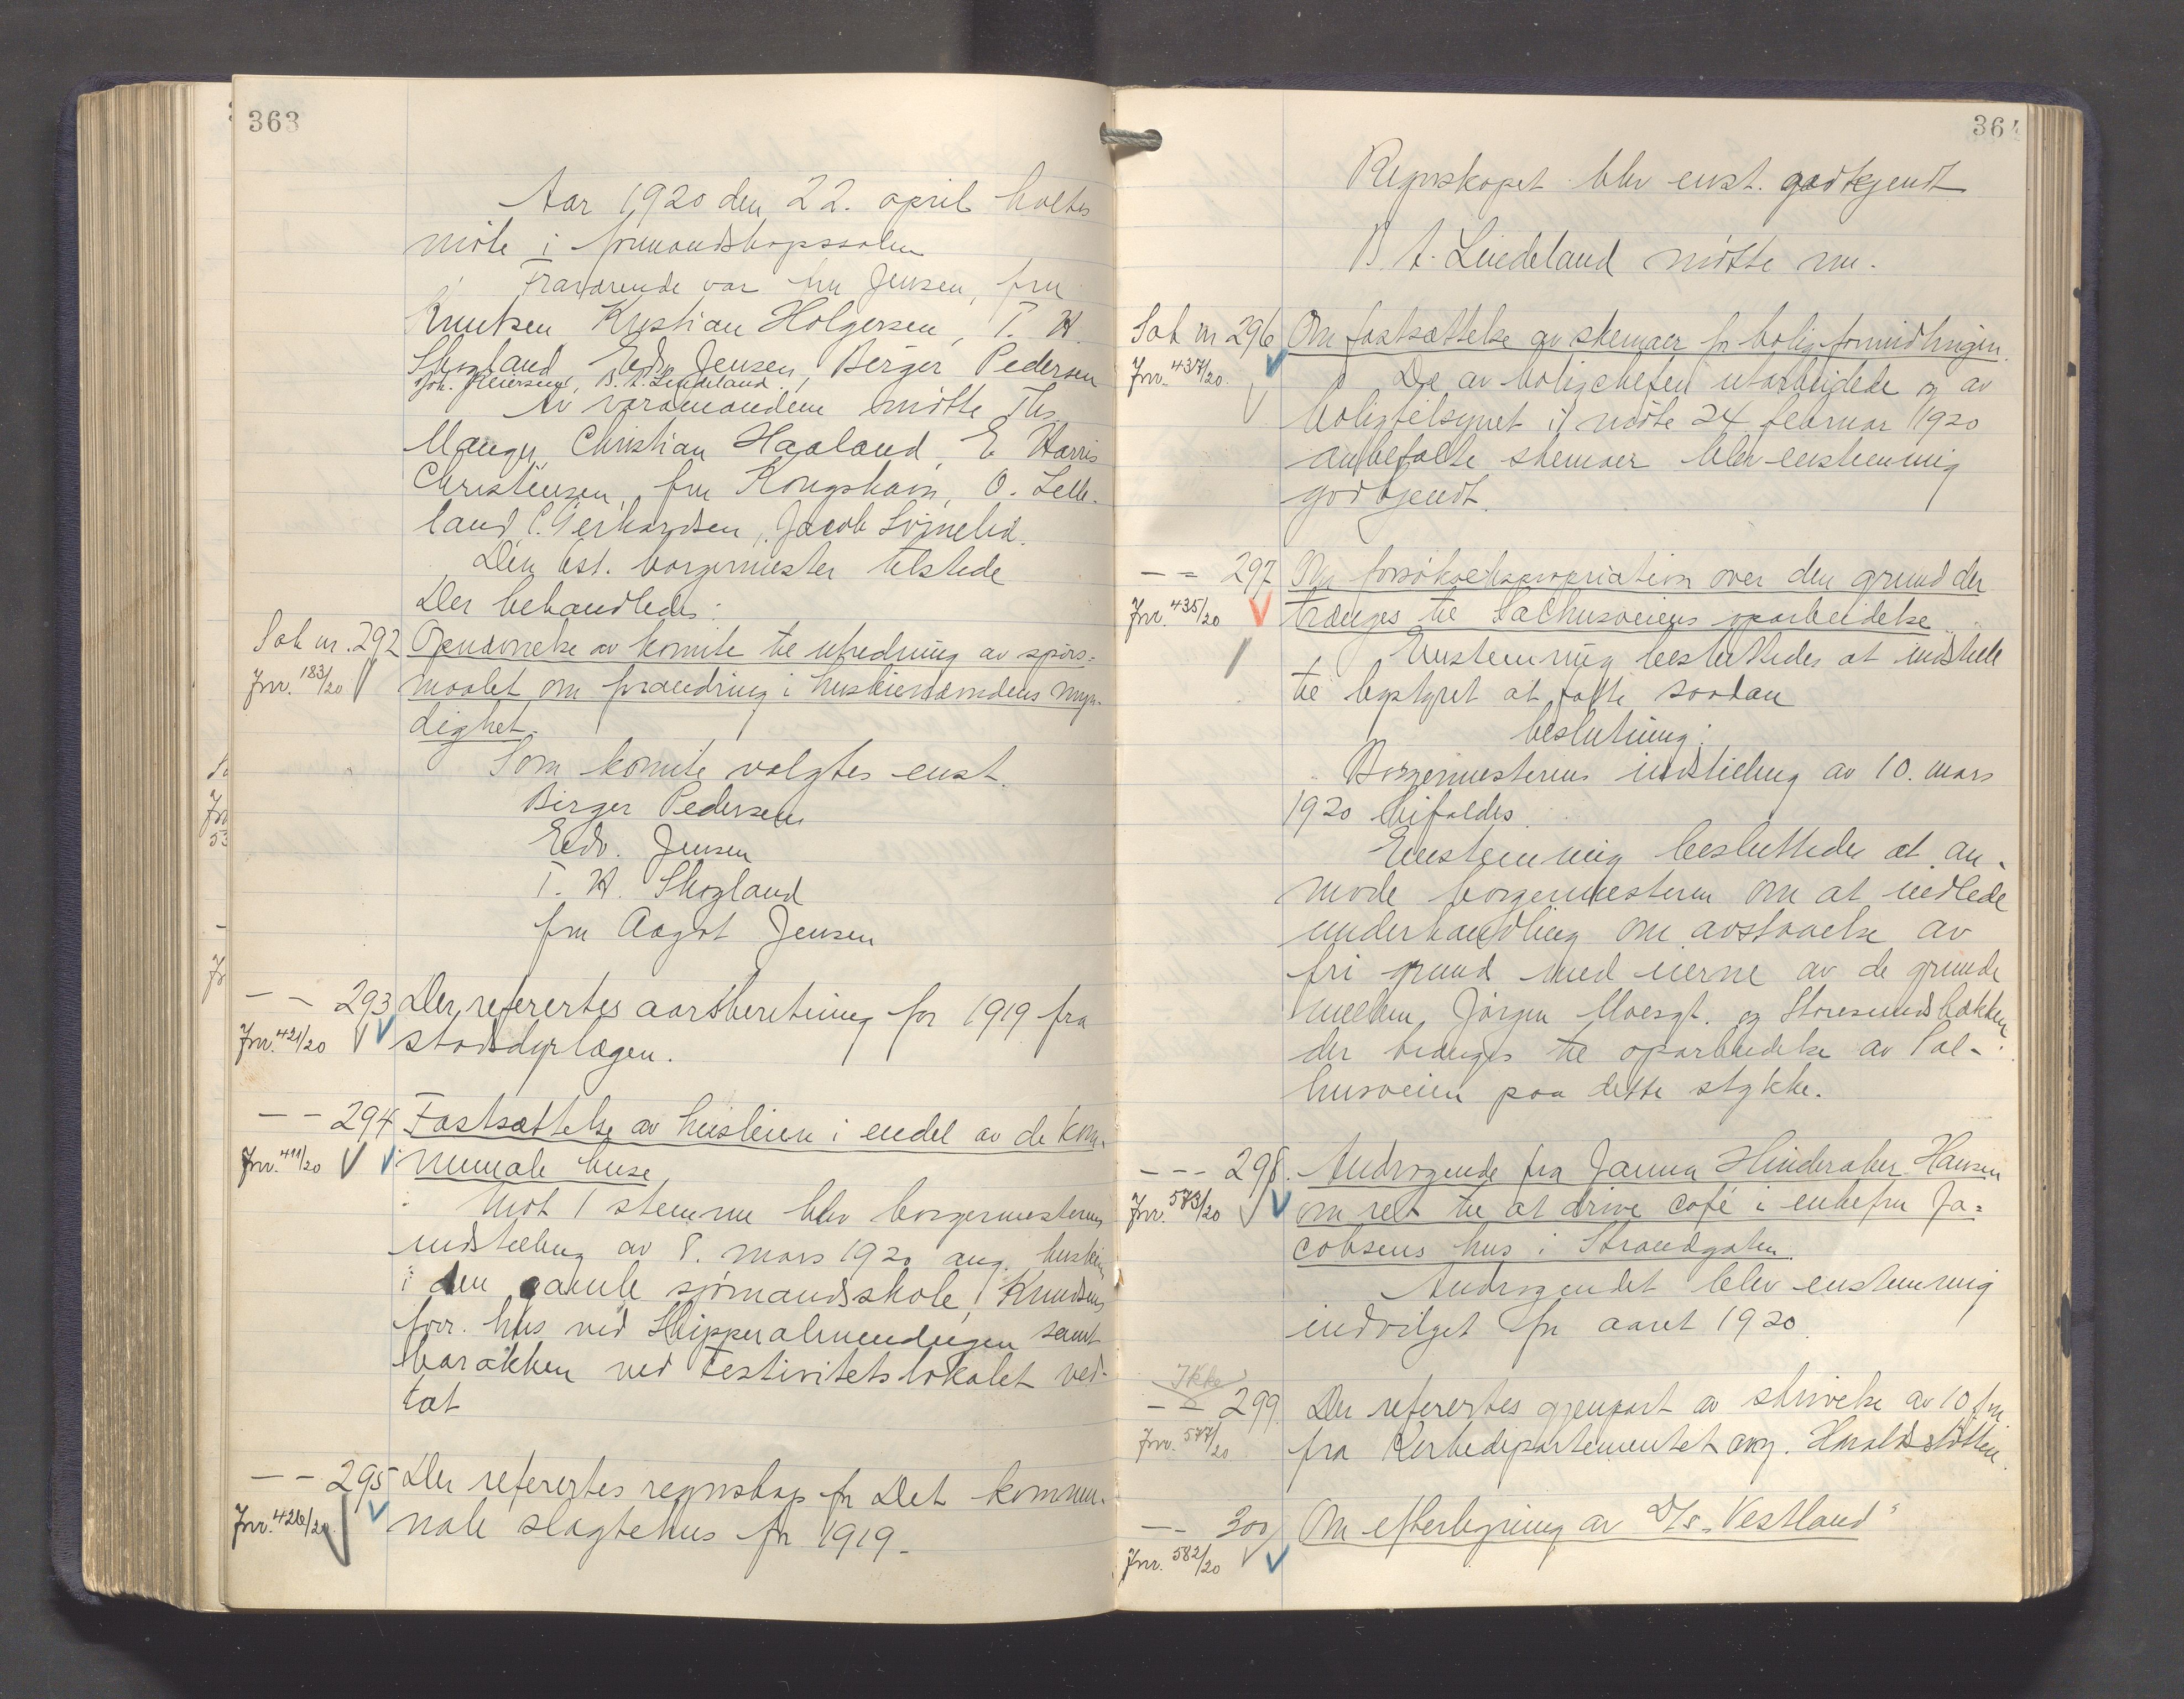 363
Aar 1920 den 22. april holtes
møte i formandskapssalen
Fraværende var fru Jensen, fru
Knutsen, Kristian Holgersen, T. H.
Skogland, Edv. Jensen, Berger Pedersen
Joh. Reiersen, B. A. Liedeland.
Av varamændene møtte Ths.
Manger, Christian Haaland, E. Harris
Christensen, fru Kongshavn, O. Lelle-
land, C. Gerhardsen, Jacob
Den kst. borgermester tilstede
Der behandledes:
Sak nr. 292 Opnævnelse av komite til utredning av spørs-
Jnr. 183/20 maalet om forandring i husleienævndens myn-
dighet.
Som komite valgtes enst.
Birger Pedersen
Edv. Jensen
T. H. Skogland
fru Aagot Jensen
— — 293 Der refertes aarsberetning for 1919 fra
Jnr. 421/20 stadsdyrlægen.
— — 294 Fastsættelse av husleien i endel av de kom-
Jnr. 411/20 munale huse
Mot 1 stemme blev borgermesterens
indstilling av 8. mars 1920 ang. husleien
i den gamle sjømandsskole, Knudsens
forr. hus ved Skipperalmendingen samt
barakken ved Festivitetslokalet ved-
tat
— — 295 Der refertes regnskap for Det kommu-
Jnr. 426/20 nale slagtehus for 1919.
364
Regnskapet blev enst. godkjendt
B. A. Liedeland møtte nu.
Sak nr 296 Om fastsættelse av skemaer for boligformidlingen.
Jnr. 437/20. De av boligchefen utarbeidede og av
boligtilsynet i møte 24 februar 1920
anbefalte skemaer blev enstemmig
godkjendt.
— — 297 Ny forsøksekspropriation over den grund der
Jnr. 435/20 trænges til Salhusveiens oparbeidelse
Enstemmig besluttedes at indstille
til bystyret at fatte saadan
beslutning:
Borgermesterens indstilling av 10. mars
1920 bifaldes.
Enstemmig besluttedes at an-
mode borgermesteren om at indlede
underhandling om avstaaelse av
fri grund med eierne av de grunde
mellem Jørgen Moesgt. og Storesundsbakken
der trænges til oparbeidelse av Sal-
husveien paa dette stykke.
— — — 298. Andragende fra Janna Hinderaker Hansen
Jnr. 573/20 om ret til at drive café i enkefru Ja-
cobsens hus i Strandgaten.
Andragendet blev enstemmig
indvilget for aaret 1920.
Ikke
— — 299. Der refertes gjenpart av skrivelse av 10 f.m.
Jnr. 577/20 fra Kirkedepartementet ang. Haraldsstøtten.
— — 300 Om efterligning av D/S „Vestland"
Jnr. 582/20